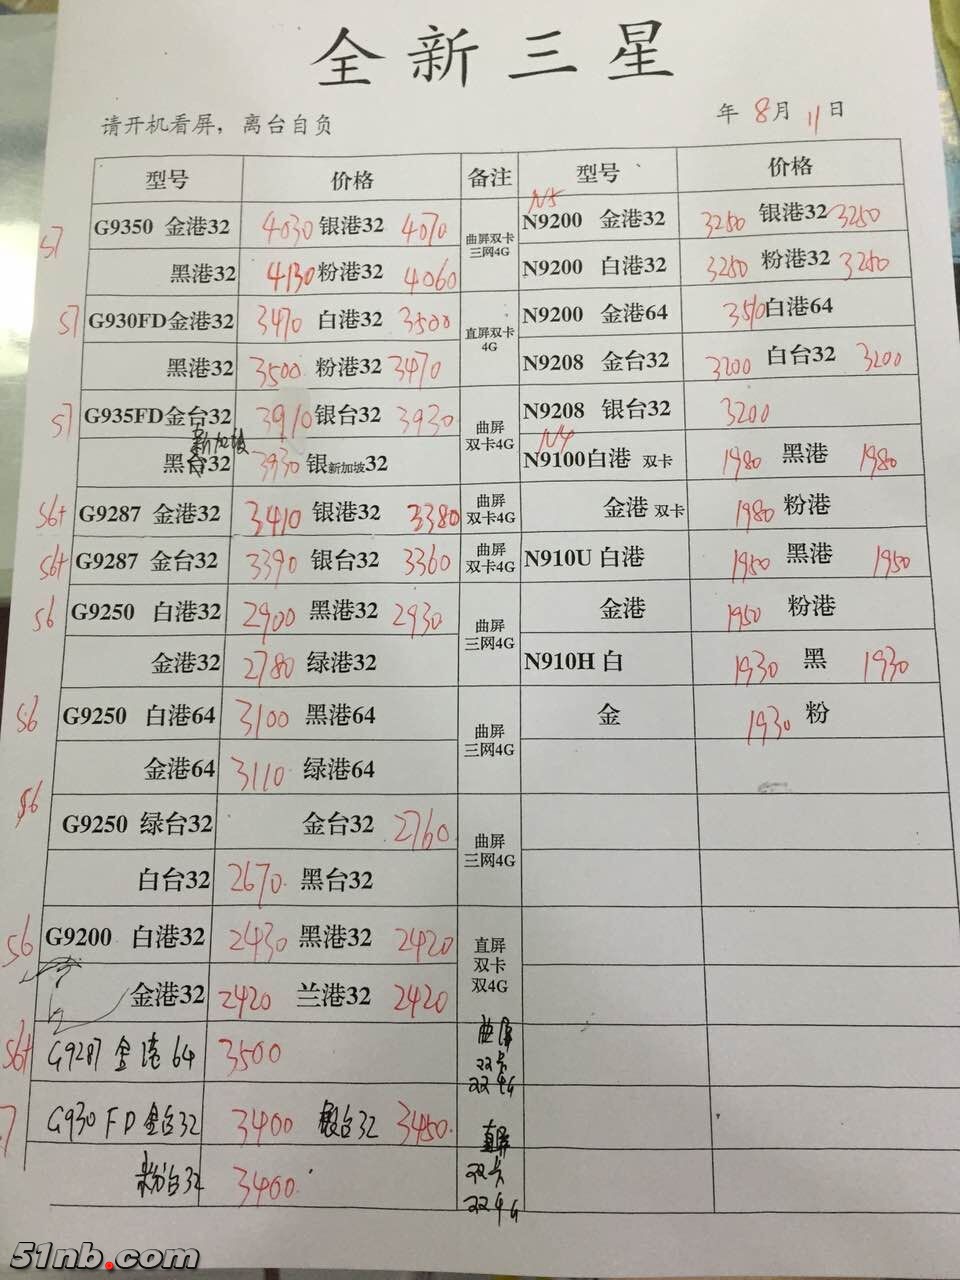 全新三星
请开机看屏，离台自负 年 8月 11日
型号 价格 备注 型号 价格
S7 G9350 金港32 4030 银港32 4070 曲屏双卡三网4G N5 N9200 金港32 3250 银港32 3250
黑港32 4130 粉港32 4060 N9200 白港32 3250 粉港32 3250
S7 G930FD金港32 3470 白港32 3500 直屏双卡4G N9200 金港64 3510 白港64
黑港32 3500 粉港32 3470 N9208 金台32 3200 白台32 3200
S7 G935FD金台32 3910 银台32 3930 曲屏双卡4G N9208 银台32 3200
新加坡 黑台32 3930 银新加坡32 N4 N9100白港 双卡 1980 黑港 1980
S6+ G9287 金港32 3410 银港32 3380 曲屏双卡4G 金港 双卡 1980 粉港
S6+ G9287 金台32 3390 银台32 3360 曲屏双卡4G N910U 白港 1950 黑港 1950
S6 G9250 白港32 2900 黑港32 2930 曲屏三网4G 金港 1950 粉港
金港32 2780 绿港32 N910H 白 1930 黑 1930
S6 G9250 白港64 3100 黑港64 曲屏三网4G 金 1930 粉
金港64 3110 绿港64
S6 G9250 绿台32 金台32 2760 曲屏三网4G
白台32 2670 黑台32
S6 G9200 白港32 2430 黑港32 2420 直屏双卡双4G
金港32 2420 兰港32 2420
S6+ G9287 金港 64 3500 曲屏双卡双4G
7 G930FD 金台32 3400 银台32 3450 直屏双卡双4G
粉台32 3400
51nb.com